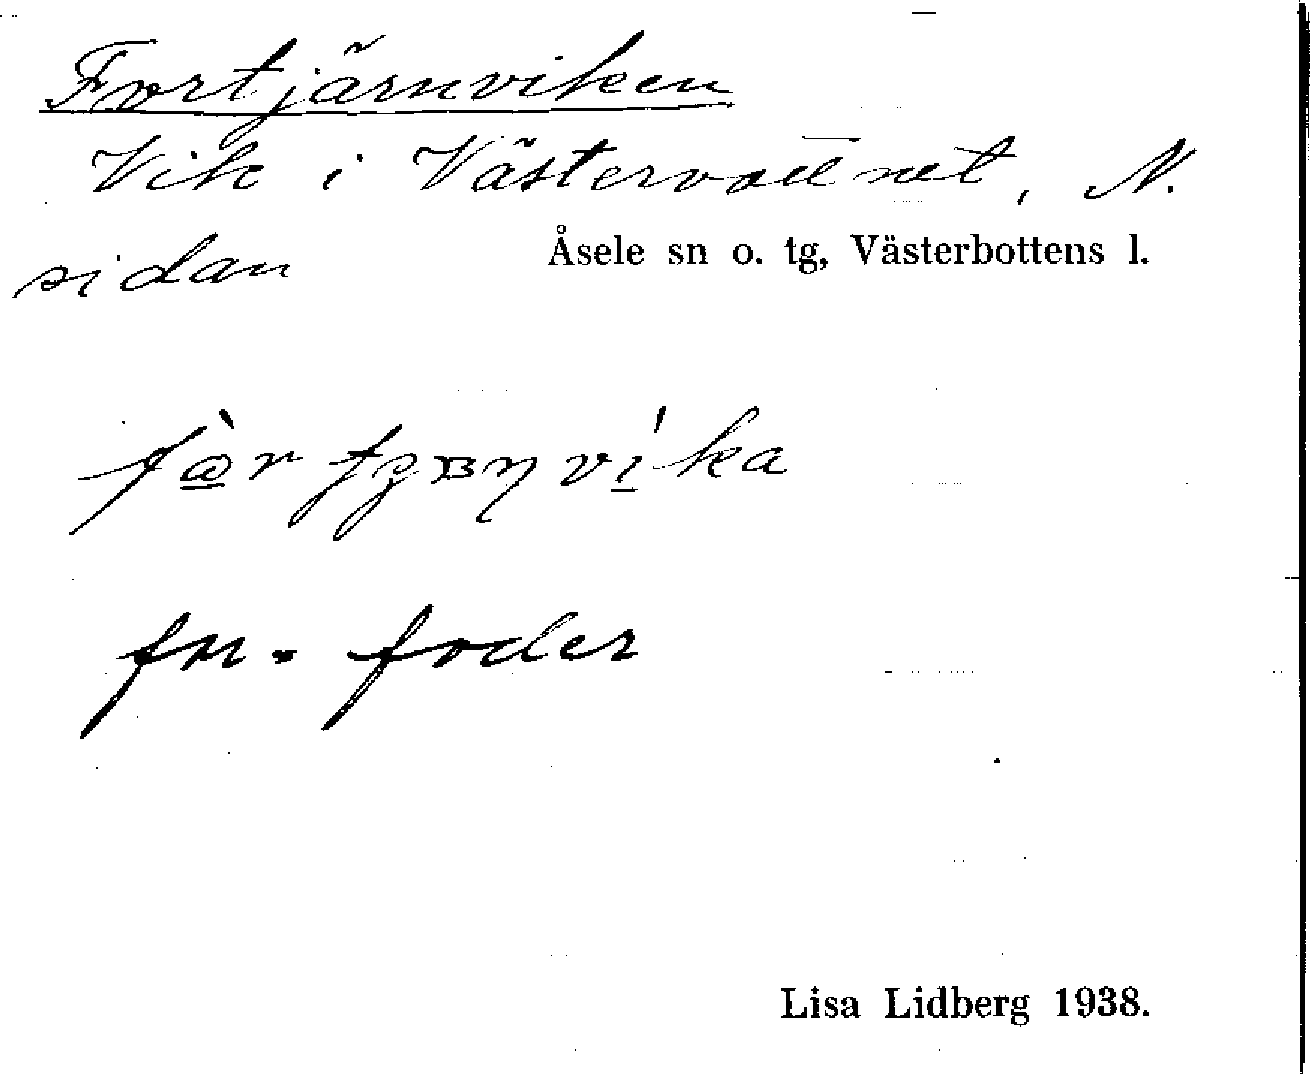 Fortjärnviken
Vik i Västervattnet, N.
sidan
Åsele sn o. tg, Västerbottens l.
foder
Lisa Lidberg 1938.